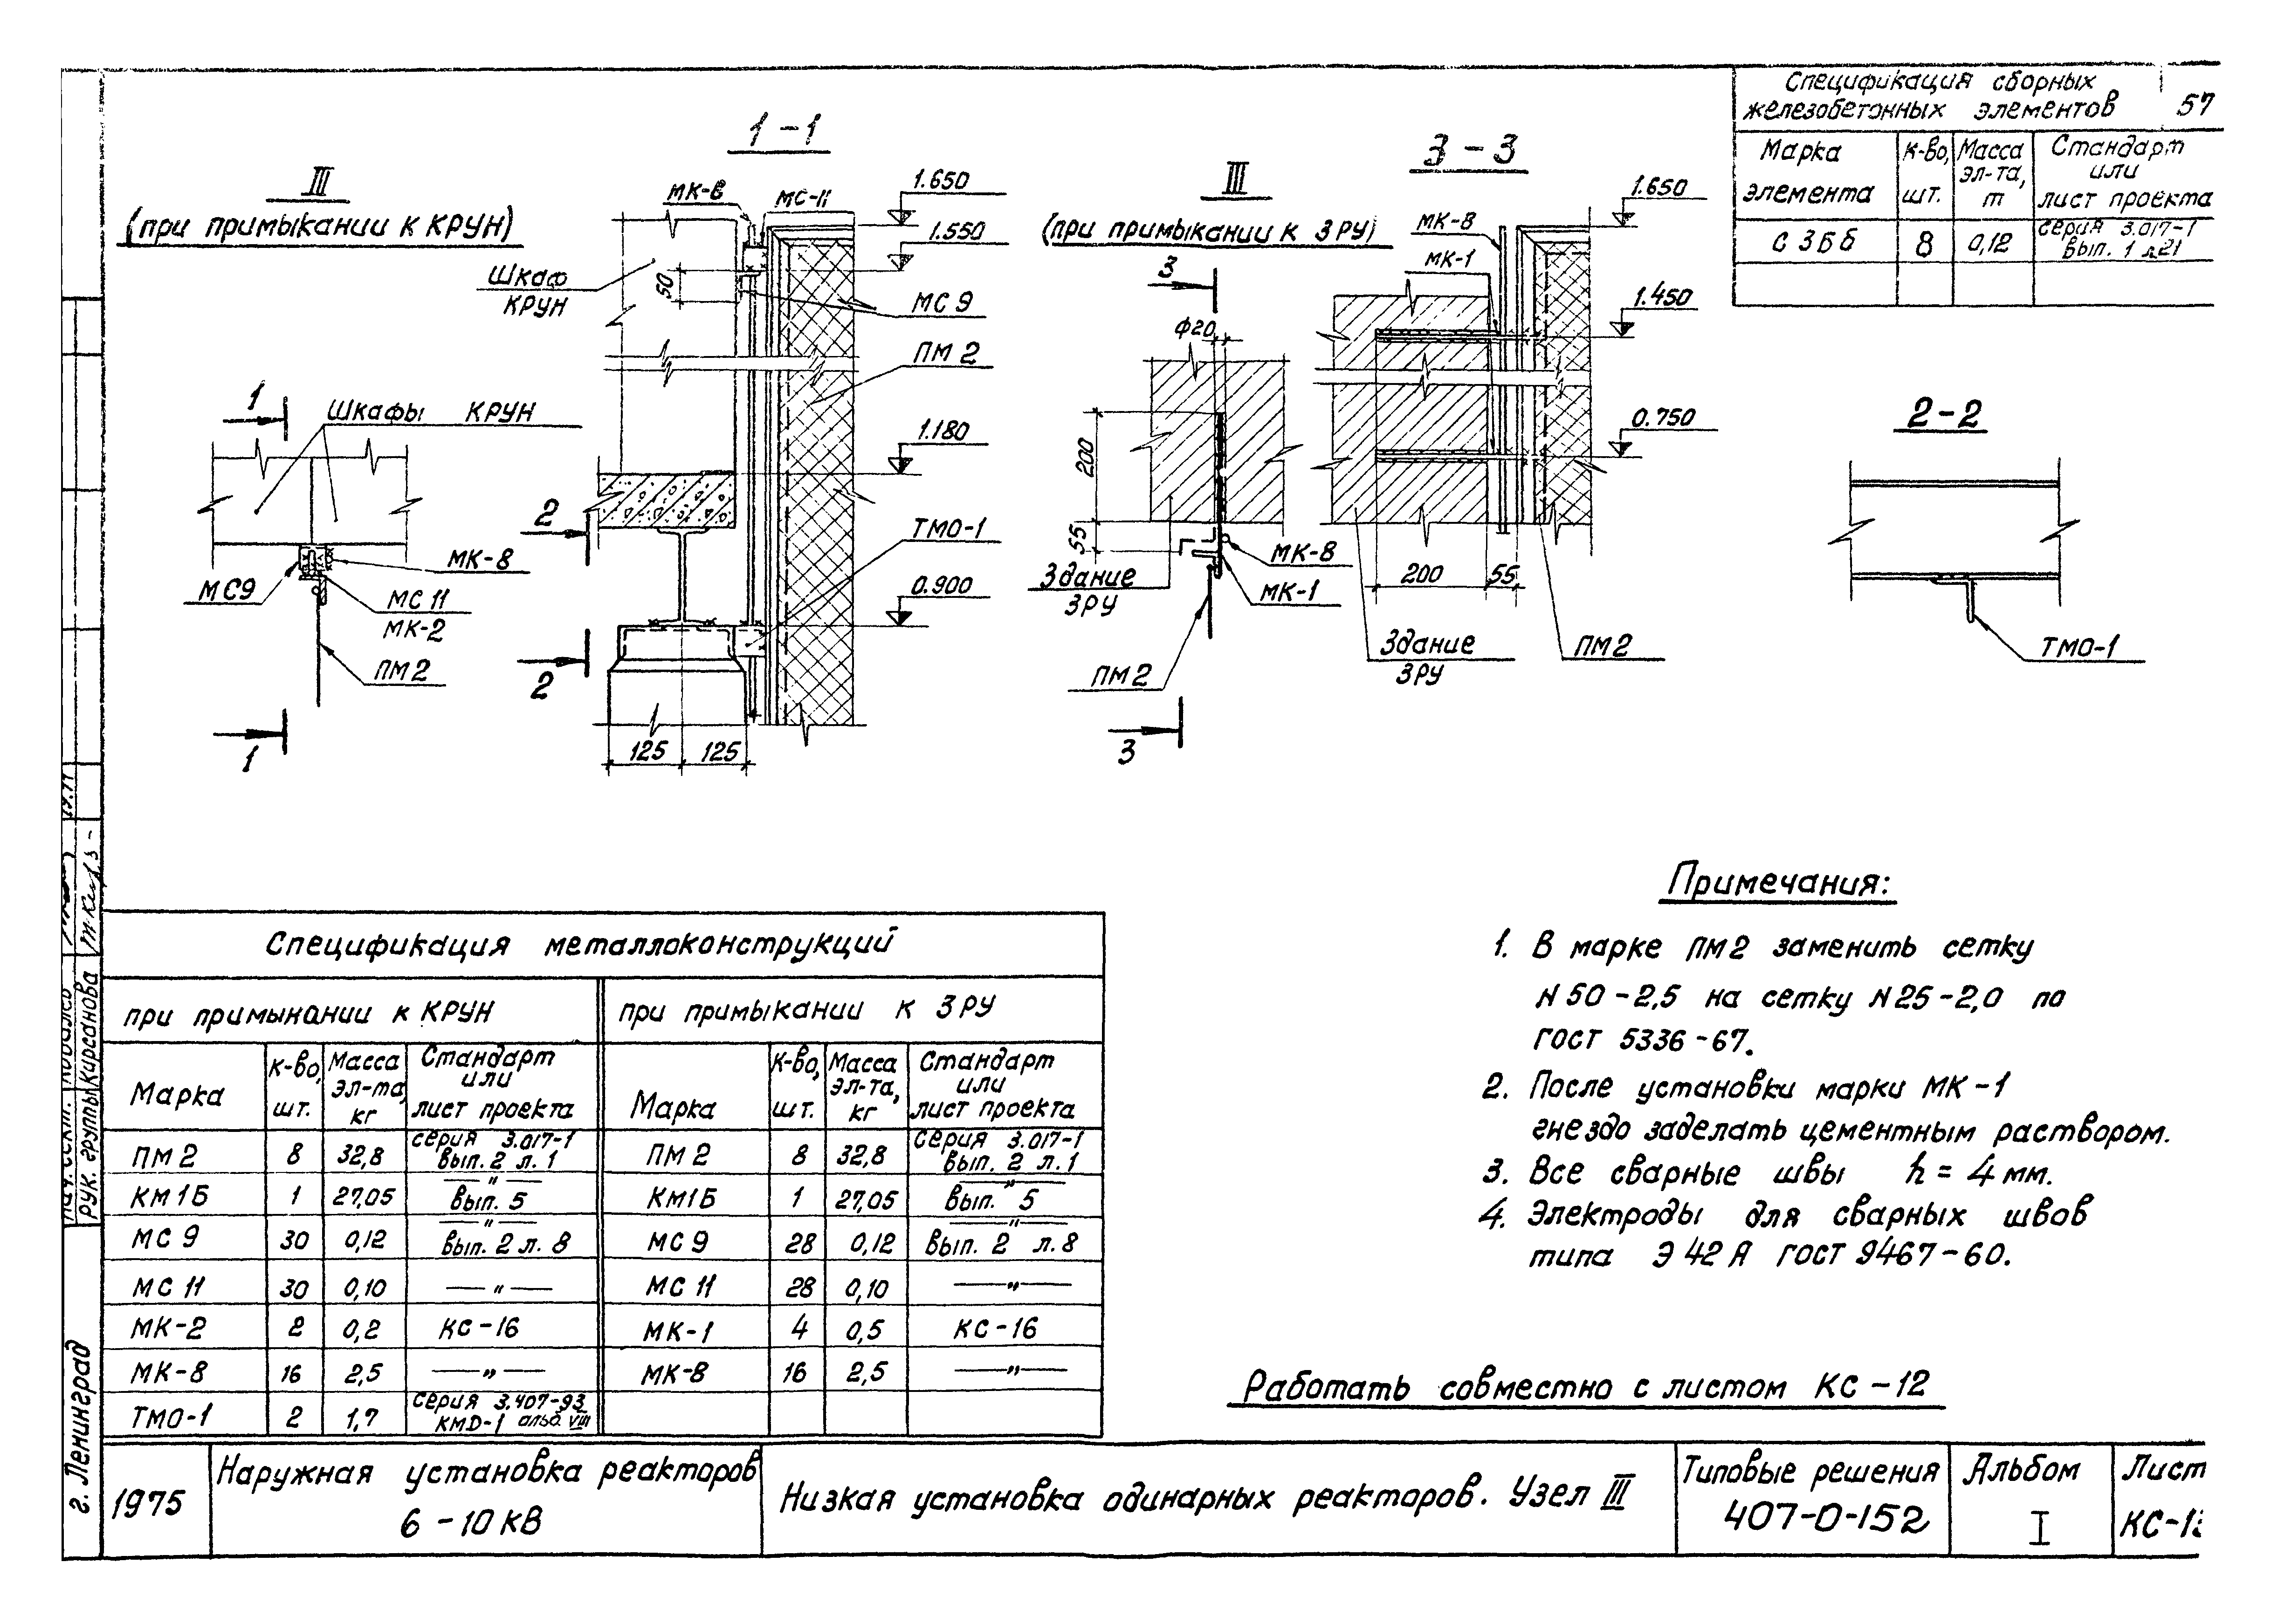 Спецификация сборных
железобетонных элементов 57
Марка элемента К-во, шт. Масса эл-та, т Стандарт или лист проекта
С 3Б б 8 0,12 серия 3.017-1 вып. 1 л21
III
(при примыкании к КРУН)
1
Шкафы КРУН
МК-8
МС9
МС 11
МК-2
ПМ2
1
1-1
МК-8
МС-11
1.650
1.550
Шкаф
КРУН
50
МС 9
ПМ 2
1.180
2
ТМО-1
0.900
2
125 125
III
(при примыкании к ЗРУ)
3
ф20
200
55
МК-8
Здание
ЗРУ
МК-1
ПМ2
3
3-3
МК-8
1.650
МК-1
1.450
0.750
200 55
Здание
ЗРУ
ПМ2
2-2
ТМО-1
Спецификация металлоконструкций
при примыкании к КРУН при примыкании к ЗРУ
Марка К-во, шт. Масса эл-та, кг Стандарт или лист проекта Марка К-во, шт. Масса эл-та, кг Стандарт или лист проекта
ПМ2 8 32,8 серия 3.017-1 вып. 2 л. 1 ПМ2 8 32,8 серия 3.017-1 вып. 2 л. 1
КМ1Б 1 27,05 —"— вып. 5 КМ1Б 1 27,05 —"— вып. 5
МС 9 30 0,12 —"— вып. 2 л. 8 МС 9 28 0,12 —"— вып. 2 л. 8
МС 11 30 0,10 —"— МС 11 28 0,10 —"—
МК-2 2 0,2 КС-16 МК-1 4 0,5 КС-16
МК-8 16 2,5 —"— МК-8 16 2,5 —"—
ТМО-1 2 1,7 серия 3.407-93 КМД-1 альб. VIII
Примечания:
1. В марке ПМ2 заменить сетку
N 50-2,5 на сетку N 25-2,0 по
ГОСТ 5336-67.
2. После установки марки МК-1
гнездо заделать цементным раствором.
3. Все сварные швы h = 4 мм.
4. Электроды для сварных швов
типа Э 42 А ГОСТ 9467-60.
Работать совместно с листом КС-12
Рук. группы Кирсанова
г. Ленинград
1975
Наружная установка реакторов
6-10 КВ
Низкая установка одинарных реакторов. Узел III
Типовые решения
407-0-152
Альбом
I
Лист
КС-1